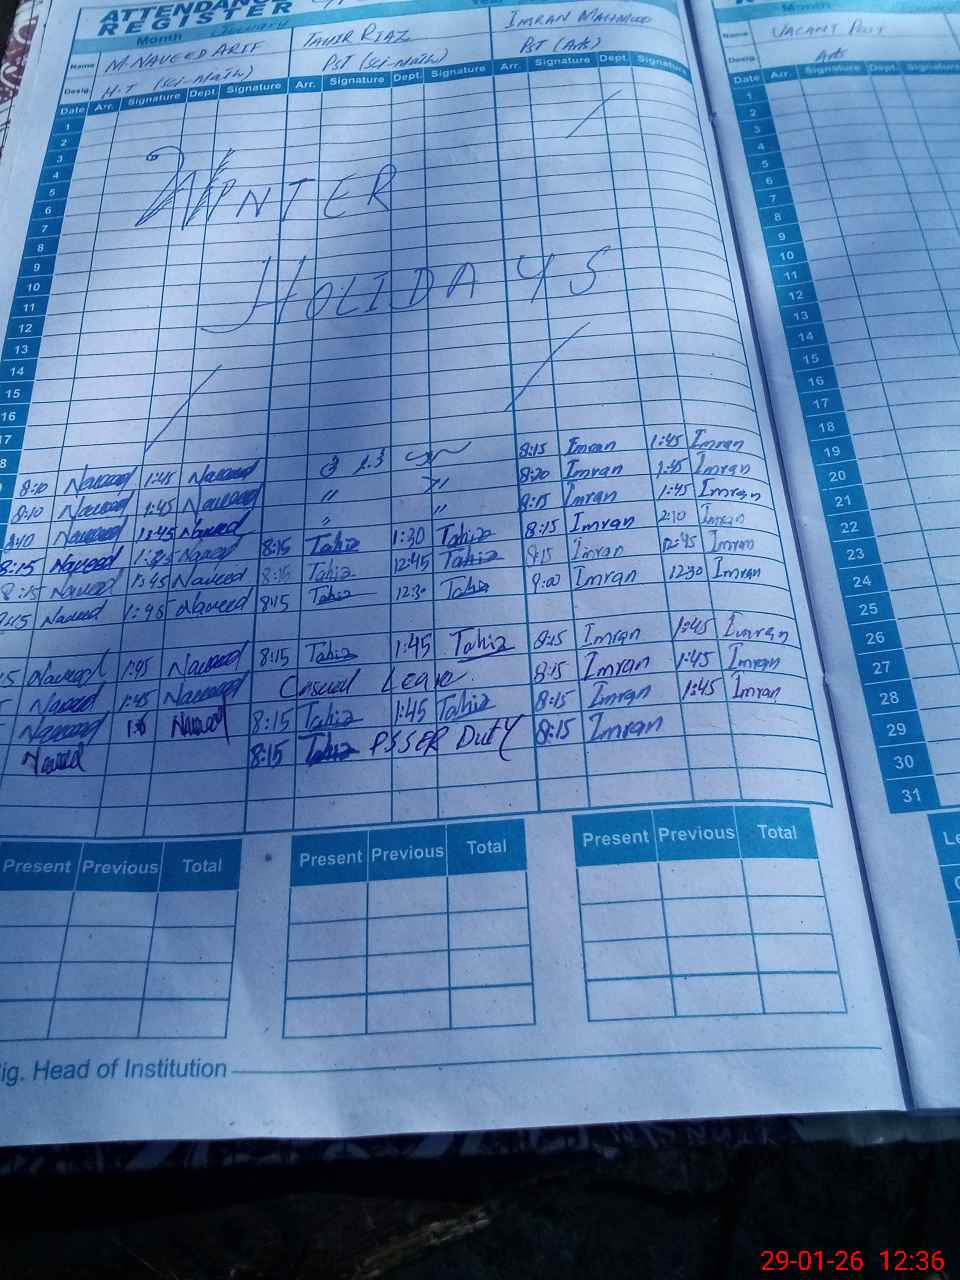 ATTENDANCE
REGISTER
Month January
Name M. NAVEED ARIF TAHIR RIAZ IMRAN MAHMOOD
Desig. H.T (Sci-Math) PST (Sci-Math) PST (Arts)
Date Arr. Signature Dept. Signature Arr. Signature Dept. Signature Arr. Signature Dept. Signature
1
2
3
4
5
6
7
8
9
10
11
12
13
14
15
16
17
WINTER
HOLIDAYS
8:10 Naveed 1:45 Naveed 8:15 Imran 1:45 Imran
8:10 Naveed 1:45 Naveed " " 8:20 Imran 1:45 Imran
8:40 Naveed 1:45 Naveed " " 8:15 Imran 1:45 Imran
8:15 Naveed 1:45 Naveed 8:15 Tahir 1:30 Tahir 8:15 Imran 2:10 Imran
8:15 Naveed 1:45 Naveed 8:15 Tahir 12:45 Tahir 8:15 Imran 12:45 Imran
8:15 Naveed 1:45 Naveed 8:15 Tahir 12:30 Tahir 8:00 Imran 12:30 Imran
Naveed 1:45 Naveed 8:15 Tahir 1:45 Tahir 8:15 Imran 1:45 Imran
Naveed 1:45 Naveed Casual Leave 8:15 Imran 1:45 Imran
Naveed Naveed 8:15 Tahir 1:45 Tahir 8:15 Imran 1:45 Imran
Naveed 8:15 Tahir PSSER Duty 8:15 Imran
Present Previous Total Present Previous Total Present Previous Total
ig. Head of Institution
Month January
Name VACANT POST
Desig. Arts
Date Arr. Signature Dept. Signature
1
2
3
4
5
6
7
8
9
10
11
12
13
14
15
16
17
18
19
20
21
22
23
24
25
26
27
28
29
30
31
Le
29-01-26 12:36